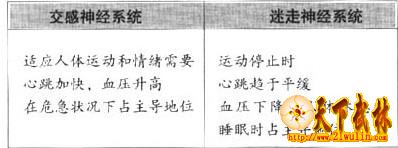 交感神经系统
迷走神经系统
适应人体运动和情绪需要
心跳加快，血压升高
在危急状况下占主导地位
运动停止时
心跳趋于平缓
血压下降
睡眠时占主导地位
天下武林
www.21wulin.com